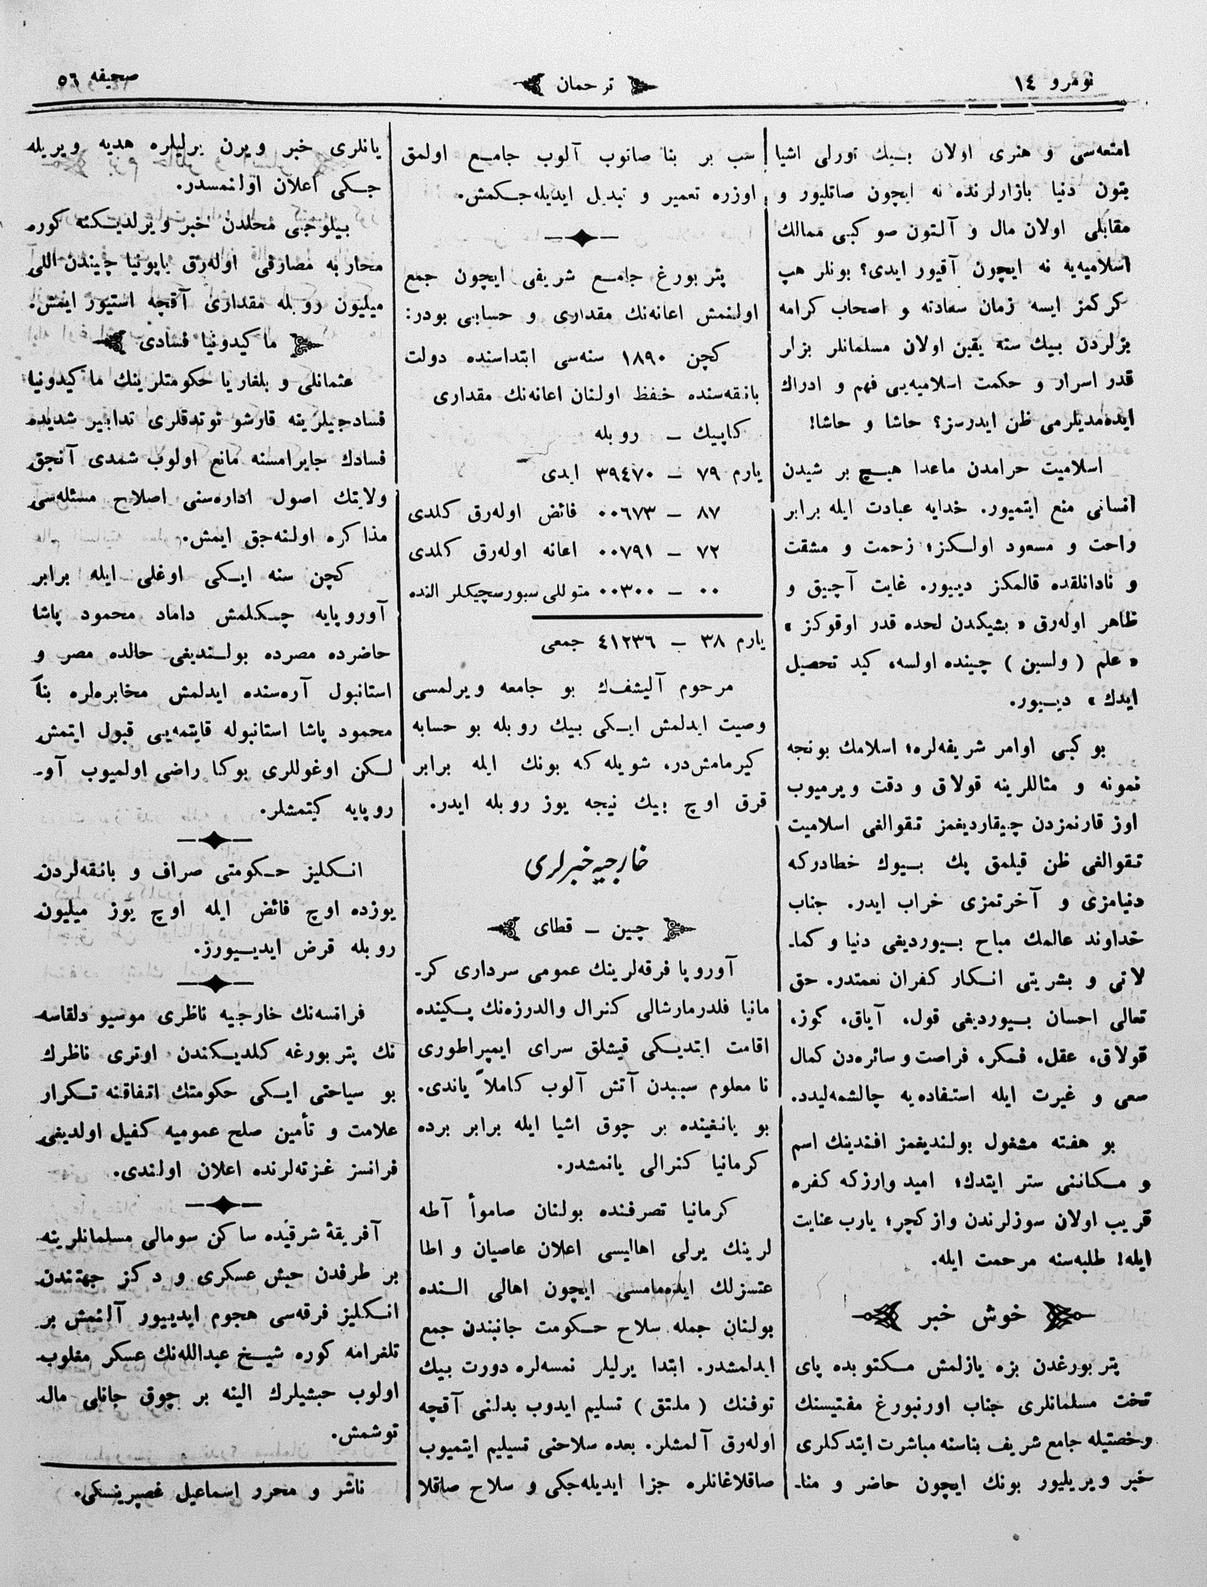 نومرو ١٤
ترجمان
صحیفه ٥٦
امتعه‌سی و هنری اولان بیك تورلی اشیا
بتون دنیا بازارلرنده نه ایچون صاتلیور و
مقابلی اولان مال و آلتون صو كبی ممالك
اسلامیه‌یه نه ایچون آقیور ایدی؟ بونلر هپ
كركمز ایسه زمان سعادته و اصحاب كرامه
بزلردن بیك سنه یقین اولان مسلمانلر بزلر
قدر اسرار و حكمت اسلامیه‌یی فهم و ادراك
ایده‌مدیلرمی ظن ایدرسز؟ حاشا و حاشا!
اسلامیت حرامدن ماعدا هیچ بر شیدن
انسانی منع ایتمیور. خدایه عبادت ایله برابر
راحت و مسعود اولكز؛ زحمت و مشقت
و نادانلقده قالمكز دییور. غایت آچیق و
ظاهر اوله‌رق «بشیكدن لحده قدر اوقوكز»
«علم (ولسین) چینده اولسه، كید تحصیل
ایدك» دییور.
بو كبی اوامر شریفه‌لره؛ اسلامك بونجه
نمونه و مثاللرینه قولاق و دقت ویرمیوب
اوز قارنمزدن چیقاردیغمز تقوالغی اسلامیت
تقوالغی ظن قیلمق پك بیوك خطادركه
دنیامزی و آخرتمزی خراب ایدر. جناب
خداوند عالمك مباح بیوردیغی دنیا و كما‌ـ
لاتی و بشریتی انكار كفران نعمتدر. حق
تعالی احسان بیوردیغی قول، آیاق، كوز،
قولاق، عقل، فكر، فراصت و سائره‌دن كمال
سعی و غیرت ایله استفاده‌یه چالشمه‌لیدد.
بو هفته مشغول بولندیغمز افندینك اسم
و مكاننی ستر ایتدك؛ امید واركه كفره
قریب اولان سوزلرندن وازكچر؛ یارب عنایت
ایله! طلبه‌سنه مرحمت ایله.
خوش خبر
پتربورغدن بزه یازلمش مكتوبده پای
تخت مسلمانلری جناب اورنبورغ مفتیسنك
رخصتیله جامع شریف بناسنه مباشرت ایتدكلری
خبر ویریلیور بونك ایچون حاضر و منا‌ـ
سب بر بنا صانوب آلوب جامع اولمق
اوزره تعمیر و تبدیل ایدیله‌جكمش.
پتربورغ جامع شریفی ایچون جمع
اولنمش اعانه‌نك مقداری و حسابی بودر:
كچن ١٨٩٠ سنه‌سی ابتداسنده دولت
بانقه‌سنده حفظ اولنان اعانه‌نك مقداری
كاپیك — روبله
یارم ٧٩ — ٣٩٤٧٠ ایدی
٨٧ — ٠٠٦٧٣ فائض اوله‌رق كلدی
٧٢ — ٠٠٧٩١ اعانه اوله‌رق كلدی
٠٠ — ٠٠٣٠٠ متوللی سبورسچیكلر النده
یارم ٣٨ — ٤١٢٣٦ جمعی
مرحوم آلیشفك بو جامعه ویرلمسی
وصیت ایدلمش ایكی بیك روبله بو حسابه
كیرمامش‌در. شویله كه بونك ایله برابر
قرق اوچ بیك نیجه یوز روبله ایدر.
خارجیه خبرلری
چین — قطای
آوروپا فرقه‌لرینك عمومی سرداری كر‌ـ
مانیا فلدرمارشالی كنرال والدرزه‌نك پكینده
اقامت ایتدیكی قیشلق سرای ایمپراطوری
نامعلوم سببدن آتش آلوب كاملاً یاندی.
بو یانغینده بر چوق اشیا ایله برابر برده
كرمانیا كنرالی یانمشدر.
كرمانیا تصرفنده بولنان صاموأ آطه
لرینك یرلی اهالیسی اعلان عاصیان و اطا
عتسزلك ایده‌مامسی ایچون اهالی النده
بولنان جمله سلاح حكومت جانبندن جمع
ایدلمشدر. ابتدا یرلیلر نمسه‌لره دورت بیك
توفنك (ملتق) تسلیم ایدوب بدلنی آقچه
اوله‌رق آلمشلر. بعده سلاحنی تسیلیم ایتمیوب
صاقلاغانلره جزا ایدیله‌جكی و سلاح صاقلا
یانلری خبر ویرن یرلیلره هدیه ویریله
جكی اعلان اولنمسدر.
بیلوجی محلدن خبر ویرلدیكنه كوره
محاربه مصارفی اوله‌رق یاپونیا چیندن اللی
میلیون روبله مقداری آقچه استیور ایمش.
ماكیدونیا فسادی
عثمانلی و بلغاریا حكومتلرینك ماكیدونیا
فسادجیلرینه قارشو توتدقلری تدابیر شدیده
فسادك جایرامسنه مانع اولوب شمدی آنجق
ولایتك اصول اداره‌سنی اصلاح مسئله‌سی
مذاكره اولنه‌جق ایمش.
كچن سنه ایكی اوغلی ایله برابر
آوروپایه چكلمش داماد محمود پاشا
حاضرده مصرده بولندیغی حالده مصر و
استانبول آره‌سنده ایدلمش مخابره‌لره بنأً
محمود پاشا استانبوله قایتمه‌یی قبول ایتمش
لكن اوغوللری بوكا راضی اولمیوب آو‌ـ
روپایه كیتمشلر.
انكلیز حكومتی صراف و بانقه‌لردن
یوزده اوچ فائض ایله اوچ یوز میلیون
روبله قرض ایدییورز.
فرانسه‌نك خارجیه ناظری موسیو دلقاسه
نك پتربورغه كلدیكندن اوتری ناظرك
بو سیاحتی ایكی حكومتك اتفاقنه تكرار
علامت و تأمین صلح عمومیه كفیل اولدیغی
فرانسز غزته‌لرنده اعلان اولندی.
آفریقهٔ شرقیده ساكن سومالی مسلمانلرینه
بر طرفدن حبش عسكری و دكز جهتندن
انكلیز فرقه‌سی هجوم ایدییور آلنمش بر
تلغرامه كوره شیخ عبدالله‌نك عسكر مغلوب
اولوب حبشیلرك الینه بر چوق جانلی مال
توشمش.
ناشر و محرر اسماعیل غصپرینسكی.